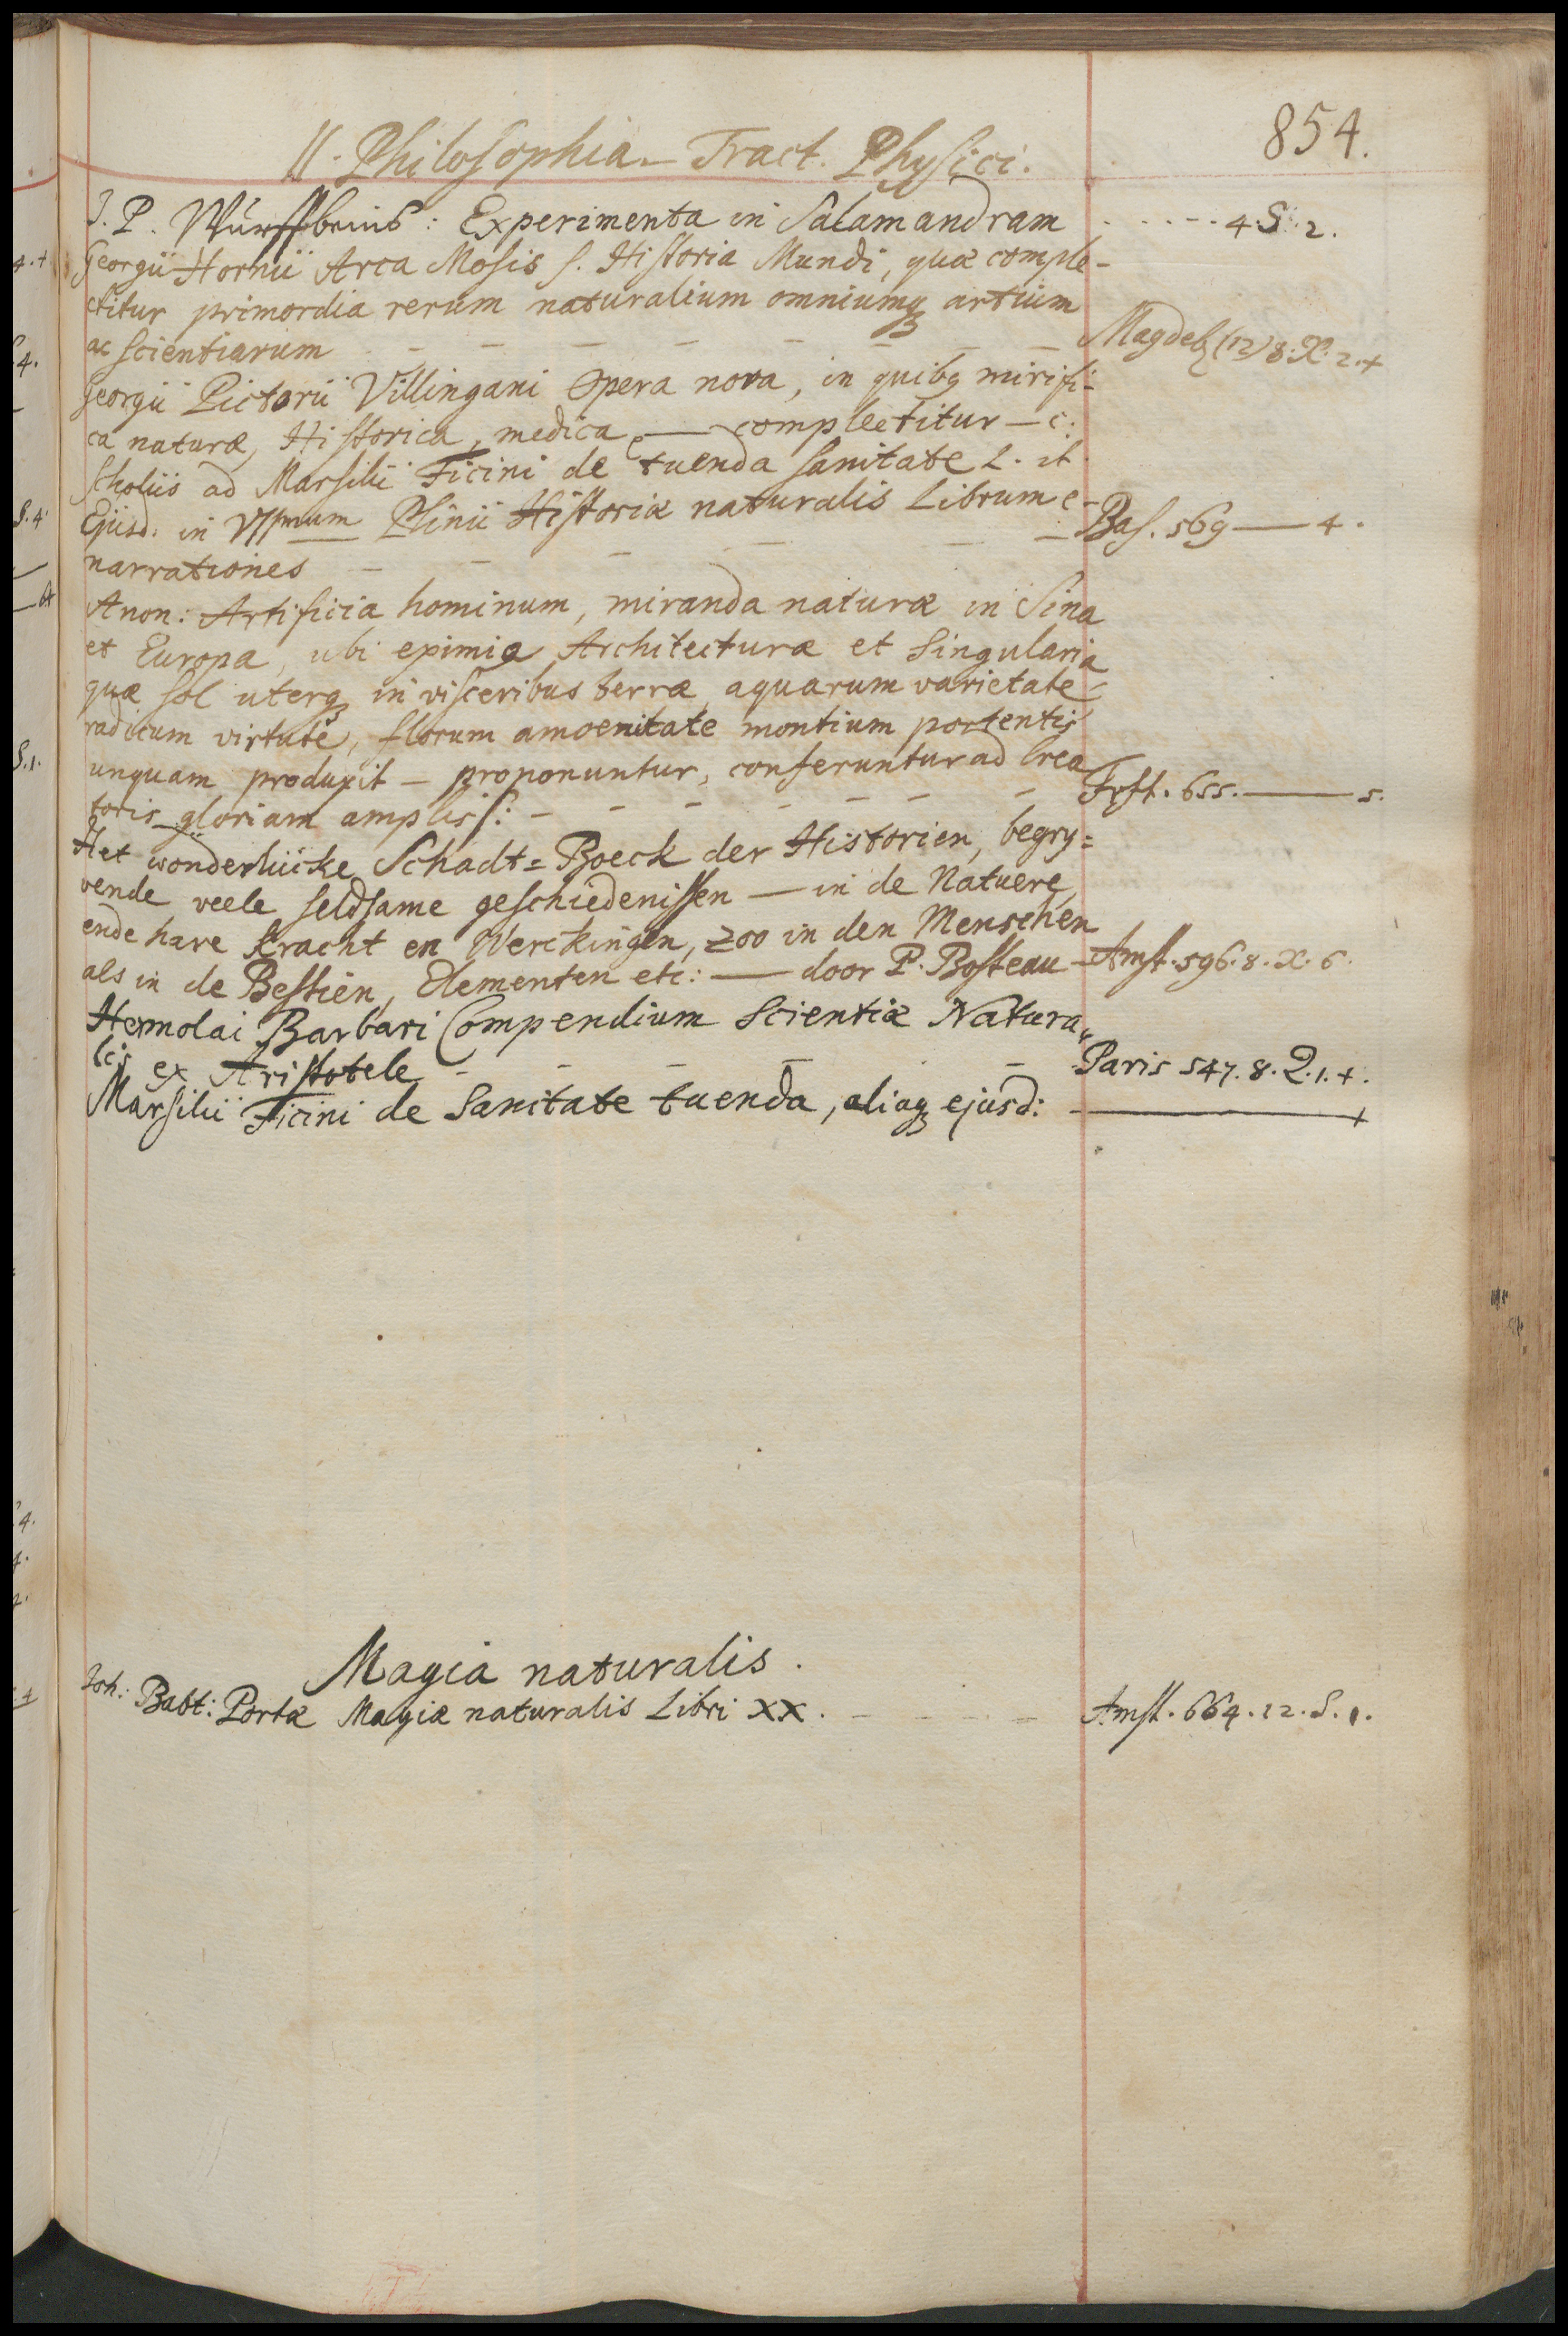 854.
II. Philosophia. Tract. Physici.
J. P. Wurffbeins: Experimenta in Salamandram - - - - - 4. S. 2.
Georgii Hornii Arca Mosis s. Historia Mundi, quæ comple-
ctitur primordia rerum naturalium omniumq artium
ac scientiarum - - - - - - - Magdeb (12) 8. X. 2. +
Georgii Pictorii Villingani Opera nova, in quibq mirifi-
ca naturæ, Historica, medica, — complectitur — c:
Scholiis ad Marsilii Ficini de tuenda sanitate L. it
Ejusd: in VII mum Plinii Historiæ naturalis Librum e-
narrationes - - - - - - Bas. 569 — 4.
Anon: Artificia hominum, miranda naturæ in Sina
et Europa, ubi eximia Architecturæ et Singularia
quæ sol uterq in visceribus terræ, aquarum varietate,
radicum virtute, florum amoenitate montium portentis
unquam produxit — proponuntur, conferuntur ad Crea
toris gloriam ampliss: - - - - - - - Frft. 655. — 5.
Het wonderlücke Schadt=Boeck der Historien, begry=
vende veele seldsame geschiedenissen — in de Natuere,
ende hare Kracht en Werckingen, zoo in den Menschen
als in de Bestien, Elementen etc: — door P. Bosteau - Amst. 596. 8. X. 6.
Hermolai Barbari Compendium Scientiæ Natura-
lis ex Aristotele - - - - - Paris 547. 8. Q. 1. +.
Marsilii Ficini de Sanitate tuenda, aliaq ejusd: — +
Magia naturalis.
Joh: Babt: Portæ Magiæ naturalis Libri XX. - - - - Amst. 664. 12. S. 1.